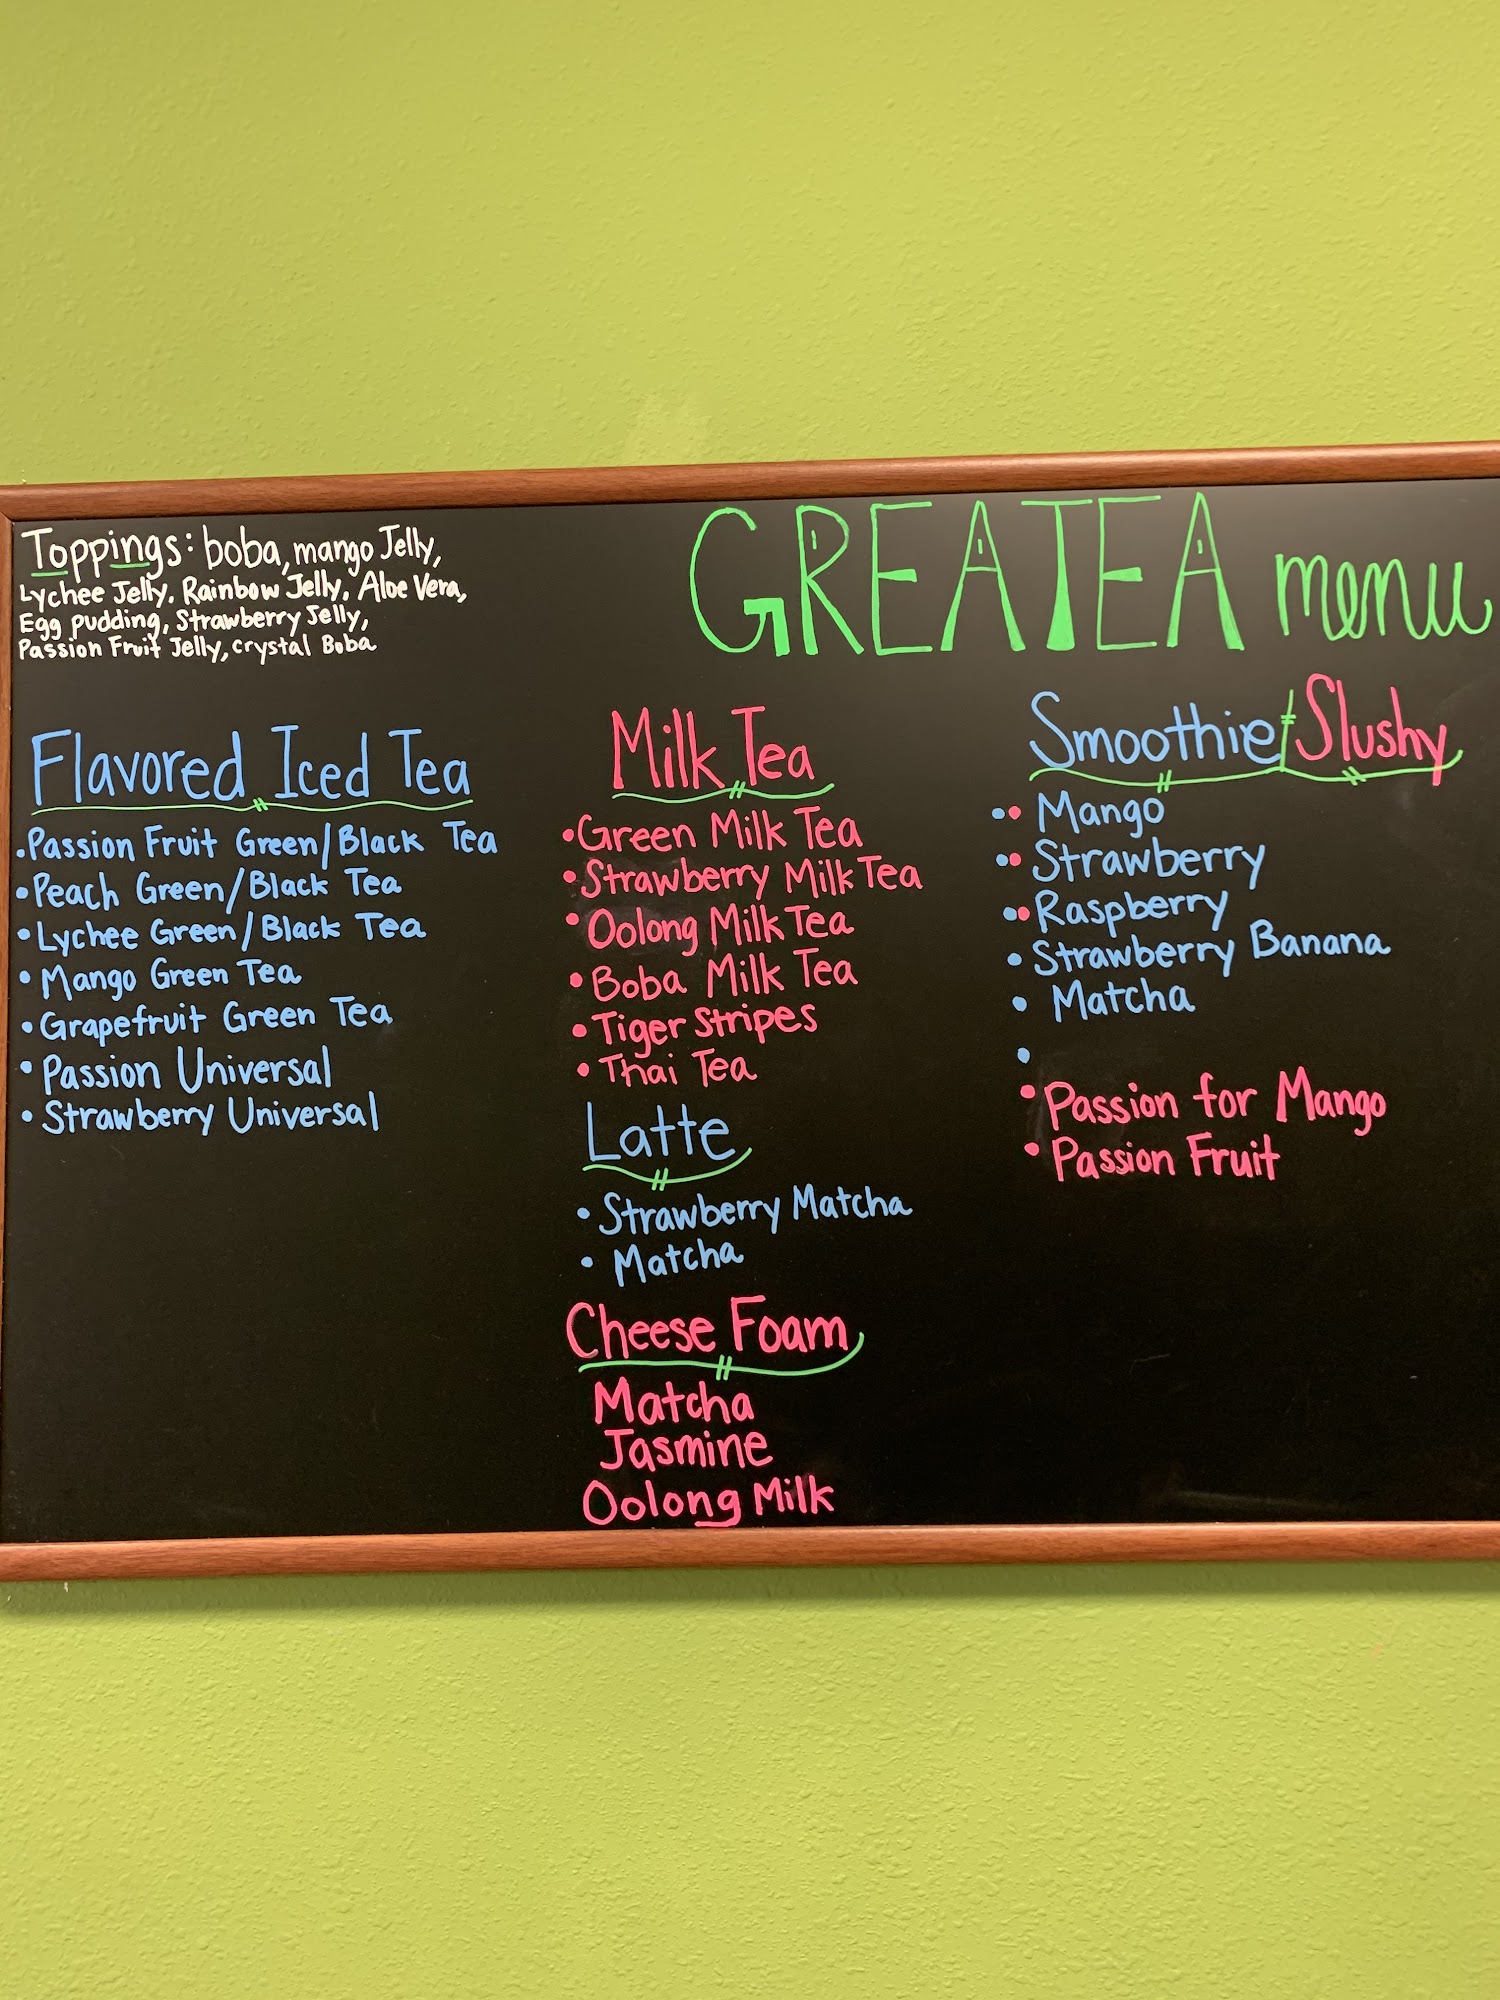 Toppings: boba, mango Jelly,
Lychee Jelly, Rainbow Jelly, Aloe Vera,
Egg pudding, Strawberry Jelly,
Passion Fruit Jelly, crystal Boba
GREATEA menu
Flavored Iced Tea
• Passion Fruit Green/Black Tea
• Peach Green/Black Tea
• Lychee Green/Black Tea
• Mango Green Tea
• Grapefruit Green Tea
• Passion Universal
• Strawberry Universal
Milk Tea
• Green Milk Tea
• Strawberry Milk Tea
• Oolong Milk Tea
• Boba Milk Tea
• Tiger Stripes
• Thai Tea
Latte
• Strawberry Matcha
• Matcha
Cheese Foam
Matcha
Jasmine
Oolong Milk
Smoothie/Slushy
•• Mango
•• Strawberry
•• Raspberry
• Strawberry Banana
• Matcha
•
• Passion for Mango
• Passion Fruit